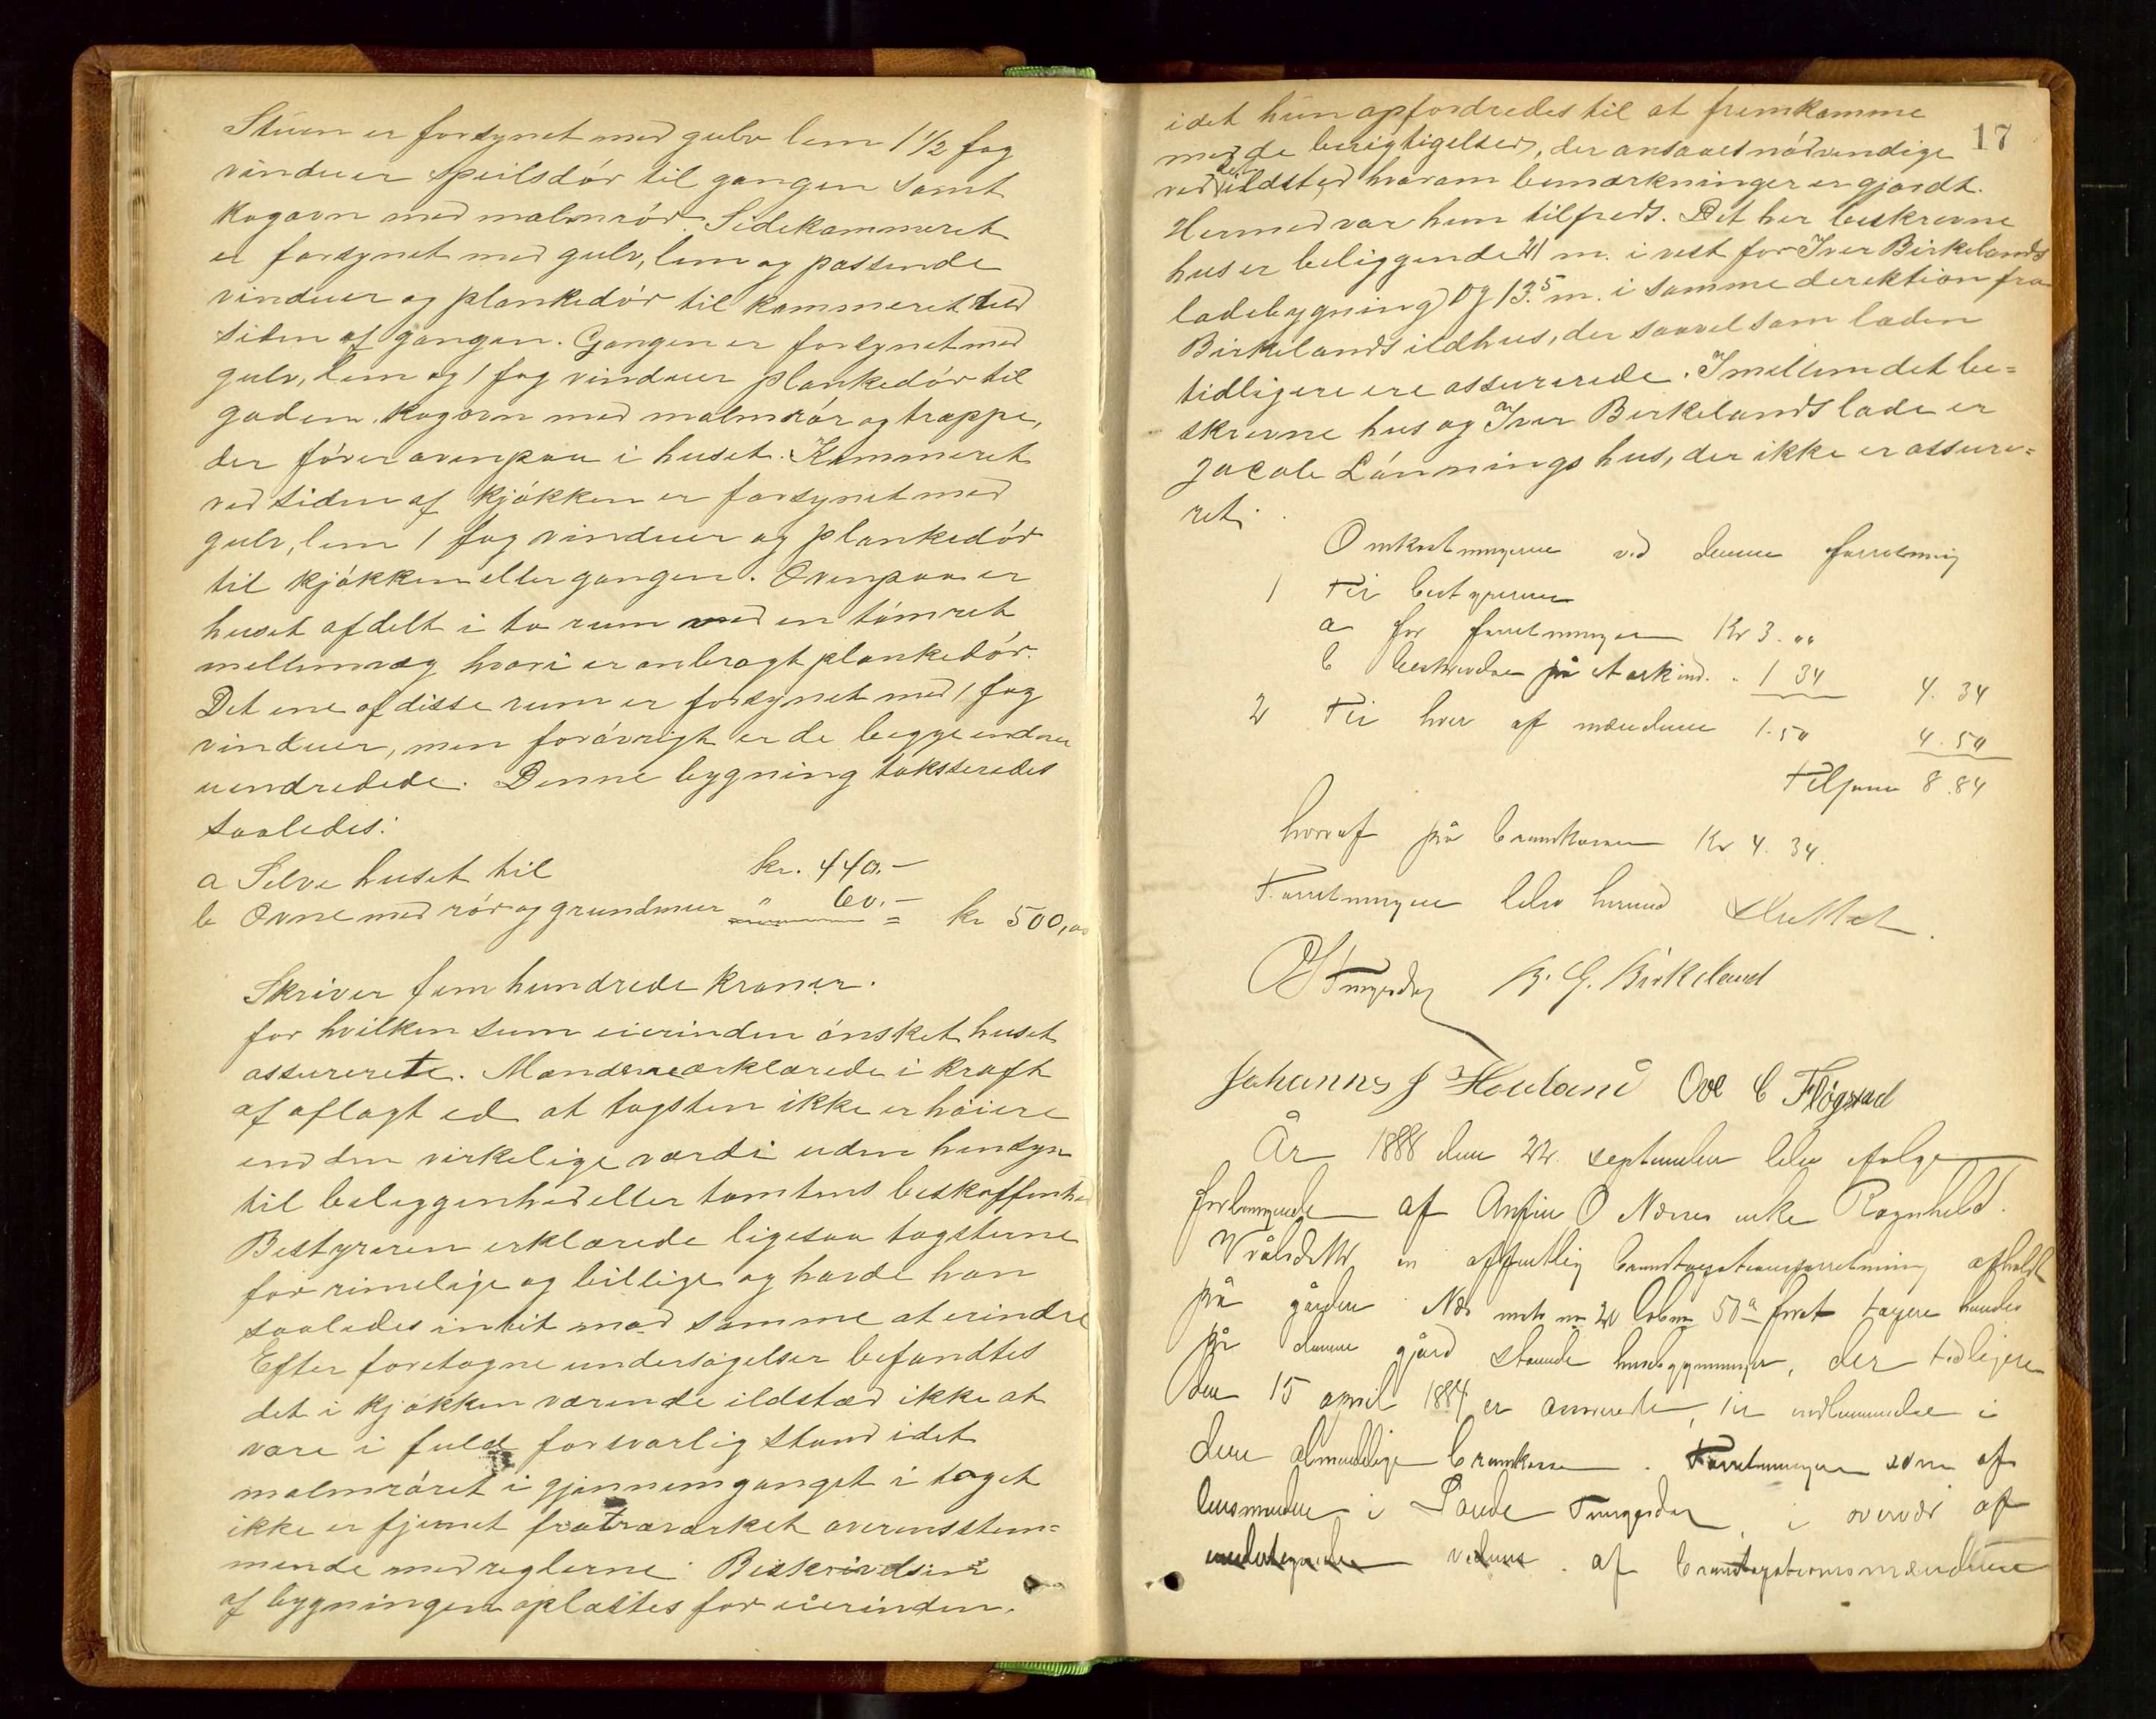 Stuen er forsynet med gulv lem 1 1/2 fag
vinduer speilsdór til gangen samt
kogovn med malmrór. Sidekammeret
er forsynet med gulv, lem og passende
vinduer og plankedór til kammeret ved
siden af gangen. Gangen er forsynet med
gulv, lem og 1 fag vinduer plankedór til
gaden, kogovn med malmrór og trappe,
der fórer ovenpaa i huset. Kammeret
ved siden af kjókken er forsynet med
gulv, lem 1 fag vinduer og plankedór
til kjókken eller gangen. Ovenpaa er
huset afdelt i to rum med en tómret
mellemvæg hvori er anbragt plankedór.
Det ene af disse rum er forsynet med 1 fag
vinduer, men forávrigt er de begge endnu
uindredede. Denne bygning taksteredes
saaledes:
a Selve huset til kr. 440.-
b Ovne med rór og grundmur " 60.- = kr 500,00
Skriver fem hundrede kroner.
for hvilken sum eierinden ónsket huset
assurerete. Mændene erklærede i kraft
af aflagt ed at tagsten ikke er hóiere
end den virkelige værdi uden hensyn
til beliggenhed eller tomtens beskaffenhed
Bestyreren erklærede ligesaa tagsterne
for rimelige og billige og havde han
saaledes intet mod samme at erindre
Efter foretagne undersógelser befandtes
det i kjókken værende ildsted ikke at
være i fuld forsvarlig stand idet
malmróret i gjennemganget i taget
ikke er fjernet fra træværket overensstem=
mende med reglerne. Beskrivelsen
af bygningen oplæstes for eierinden,
17
idet hun opfordredes til at fremkomme
med de berigtigelser, der ansaaes nódvendige
ved det ildsted hvorom bemærkninger er gjordt.
Hermed var hun tilfreds. Det her beskrevne
hus er beliggende 21 m. i vest for Iver Birkelands
ladebygning og 13.5 m. i samme derektion fra
Birkelands ildhus, der saavel som laden
tidligere ere assurerede. Imellem det be=
skrevne hus og Iver Birkelands lade er
Jacob Lónnings hus, der ikke er assure=
ret.
Omkostningerne ved denne forretning
1 Til bestyreren
a for forretningen Kr 3. "
b beskrivelse på et ark ind. " 1 34 4. 34
2 Til hver af mændene 1.50 4.50
Tilsam 8.84
hvoraf på brandkassen Kr 4. 34.
Forretningen blev hermed sluttet.
B. G. Birkeland
Johannes J Houland Ove C Fløgstad
År 1888 den 22. september blev ifølge
forlangende af Anfin O Næsses enke Ragnhild
en offentlig brandtaxationsforretning afholdt
på gården Næs matr no 20 løbno 50a forat taxere hendes
på denne gjård stående husebygninger, der tidligere
den 15 april 1884 er assurerede, til indlemmelse i
den almindelige brandkasse. Forretningen som af
lensmanden i i overvær af
undertegnede af brandtaxationsmændene